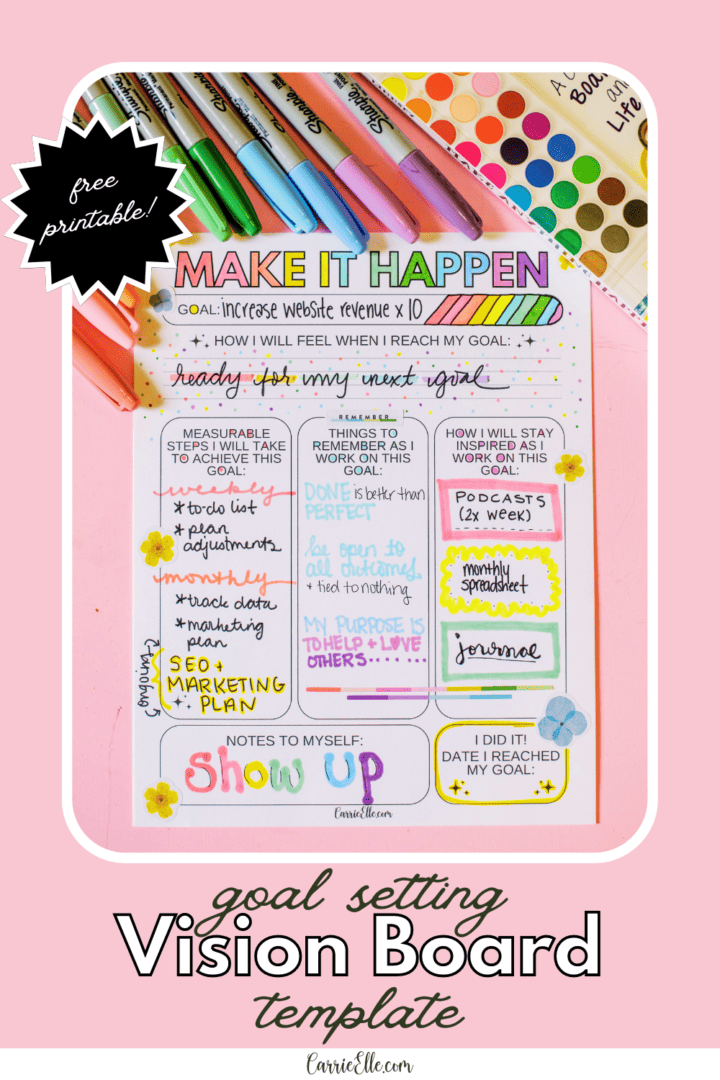 free
printable!
Sharpie
Sharpie
Sharpie
Board
and
Life
MAKE IT HAPPEN
GOAL: increase website revenue x 10
HOW I WILL FEEL WHEN I REACH MY GOAL:
ready for my next goal
REMEMBER
MEASURABLE
STEPS I WILL TAKE
TO ACHIEVE THIS
GOAL:
weekly
*to-do list
*plan
adjustments
monthly
*track data
*marketing
plan
ongoing
SEO +
MARKETING
PLAN
THINGS TO
REMEMBER AS I
WORK ON THIS
GOAL:
DONE is better than
PERFECT
be open to
all outcomes
+ tied to nothing
MY PURPOSE IS
TO HELP + LOVE
OTHERS......
HOW I WILL STAY
INSPIRED AS I
WORK ON THIS
GOAL:
PODCASTS
(2x WEEK)
monthly
spreadsheet
journal
NOTES TO MYSELF:
Show UP
CarrieElle.com
I DID IT!
DATE I REACHED
MY GOAL:
goal setting
Vision Board
template
CarrieElle.com